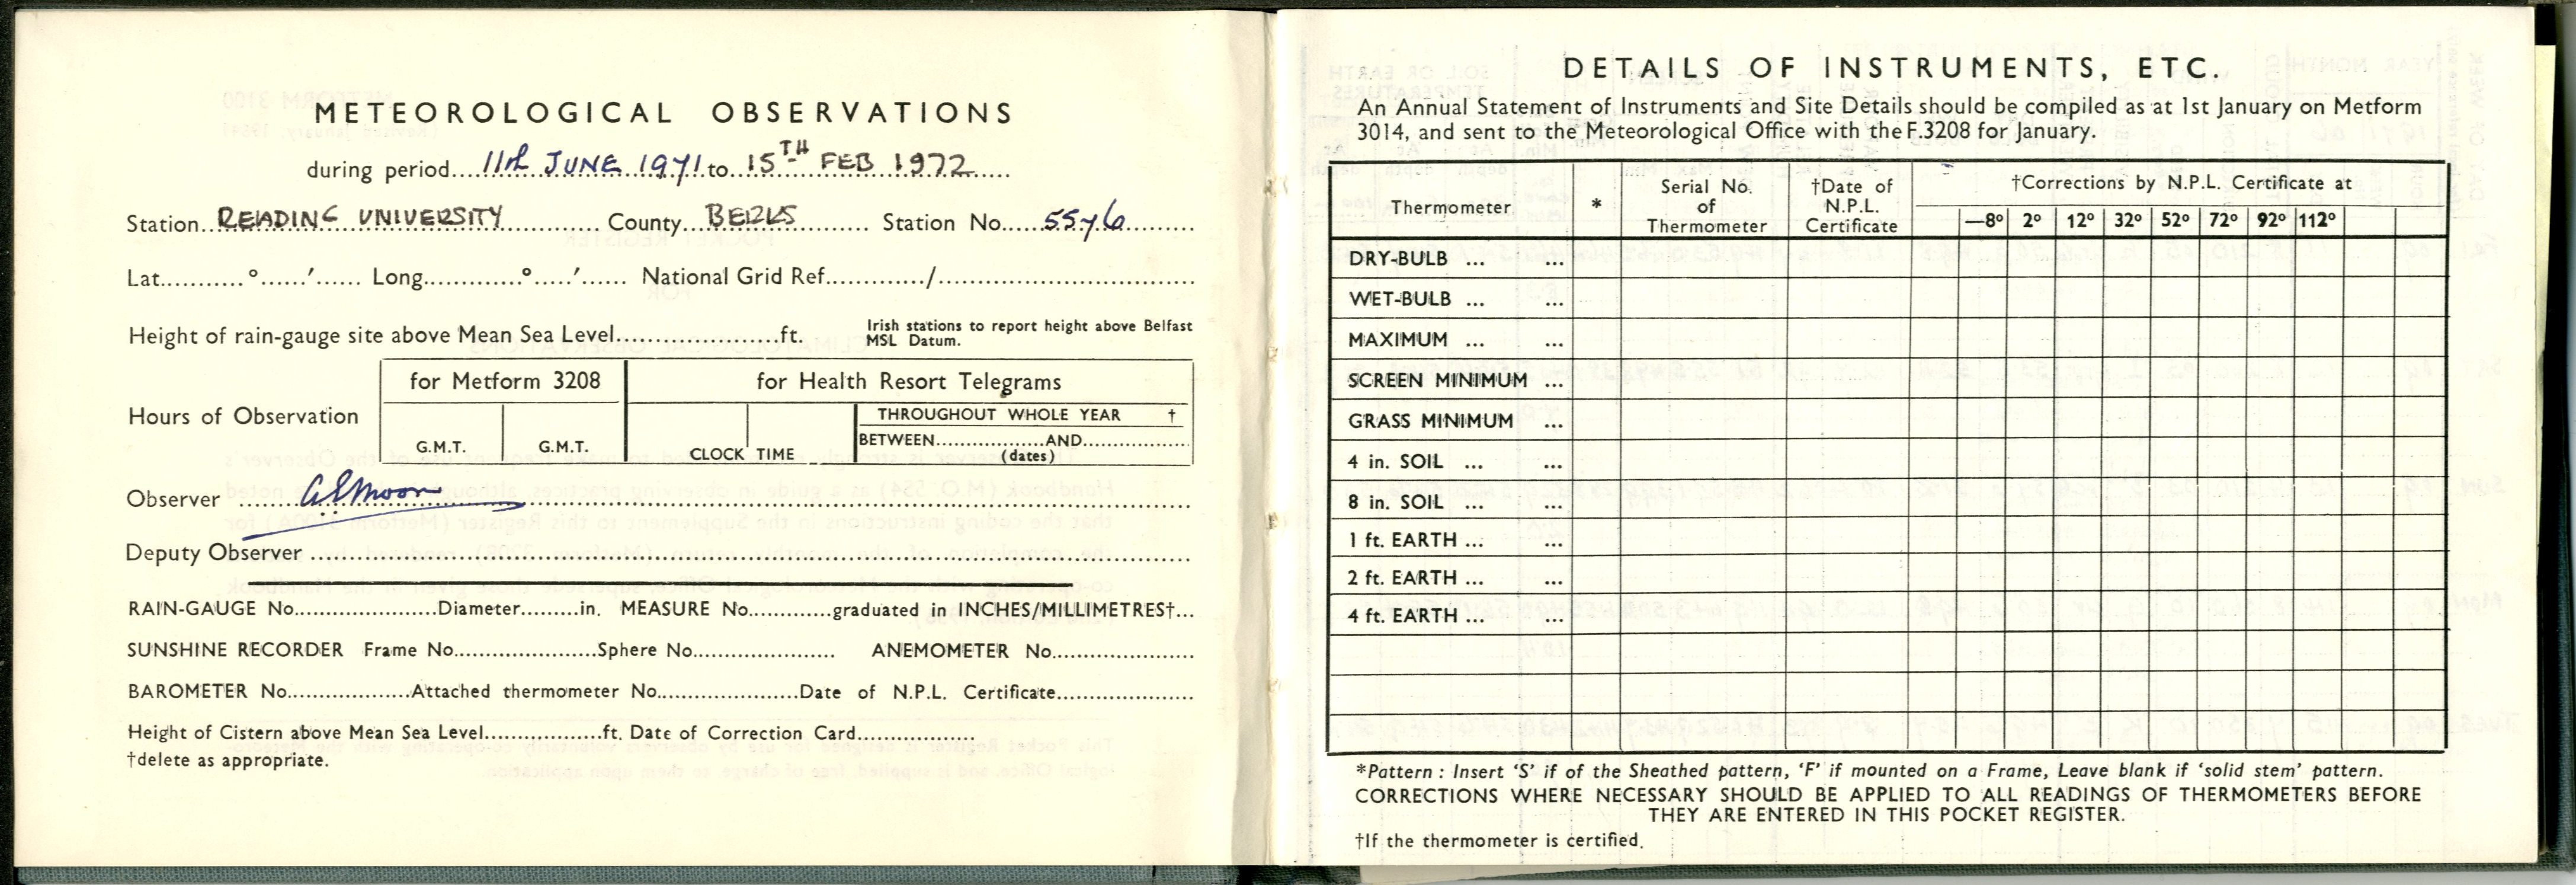 METEOROLOGICAL OBSERVATIONS
during period....11th JUNE 1971.to..15TH FEB 1972......
Station..READING UNIVERSITY............ County..BERKS......... Station No....5576..........
Lat...........°......′...... Long.............°.....′...... National Grid Ref.........../..............................
Height of rain-gauge site above Mean Sea Level....................ft. Irish stations to report height above Belfast
MSL Datum.
for Metform 3208 for Health Resort Telegrams
Hours of Observation THROUGHOUT WHOLE YEAR †
G.M.T. G.M.T. CLOCK TIME BETWEEN..................AND..................
(dates)
Observer
Deputy Observer ..............................................................
RAIN-GAUGE No.....................Diameter........in. MEASURE No............graduated in INCHES/MILLIMETRES†...
SUNSHINE RECORDER Frame No.....................Sphere No..................... ANEMOMETER No.....................
BAROMETER No..................Attached thermometer No.....................Date of N.P.L. Certificate.....................
Height of Cistern above Mean Sea Level..................ft. Date of Correction Card..................
†delete as appropriate.
DETAILS OF INSTRUMENTS, ETC.
An Annual Statement of Instruments and Site Details should be compiled as at 1st January on Metform
3014, and sent to the Meteorological Office with the F.3208 for January.
Thermometer * Serial No. of Thermometer †Date of N.P.L. Certificate †Corrections by N.P.L. Certificate at
—8° 2° 12° 32° 52° 72° 92° 112°
DRY-BULB ... ...
WET-BULB ... ...
MAXIMUM ... ...
SCREEN MINIMUM ...
GRASS MINIMUM ...
4 in. SOIL ... ...
8 in. SOIL ... ...
1 ft. EARTH ... ...
2 ft. EARTH ... ...
4 ft. EARTH ... ...
*Pattern : Insert ‘S’ if of the Sheathed pattern, ‘F’ if mounted on a Frame, Leave blank if ‘solid stem’ pattern.
CORRECTIONS WHERE NECESSARY SHOULD BE APPLIED TO ALL READINGS OF THERMOMETERS BEFORE
THEY ARE ENTERED IN THIS POCKET REGISTER.
†If the thermometer is certified.